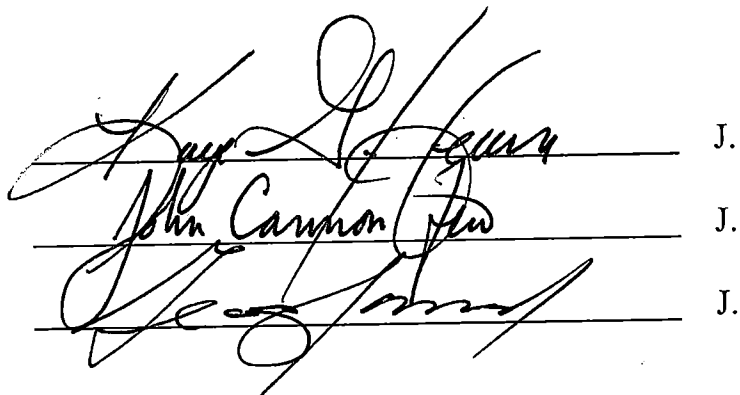 Kaye G. Hearn J.
John Cannon Few J.
J.